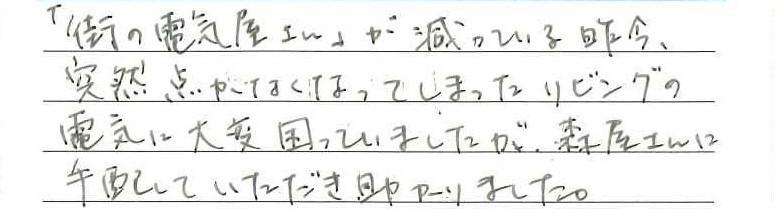 「街の電気屋さん」が減っている昨今、
突然点かなくなってしまったリビングの
電気に大変困っていましたが、森屋さんに
手配していただき助かりました。